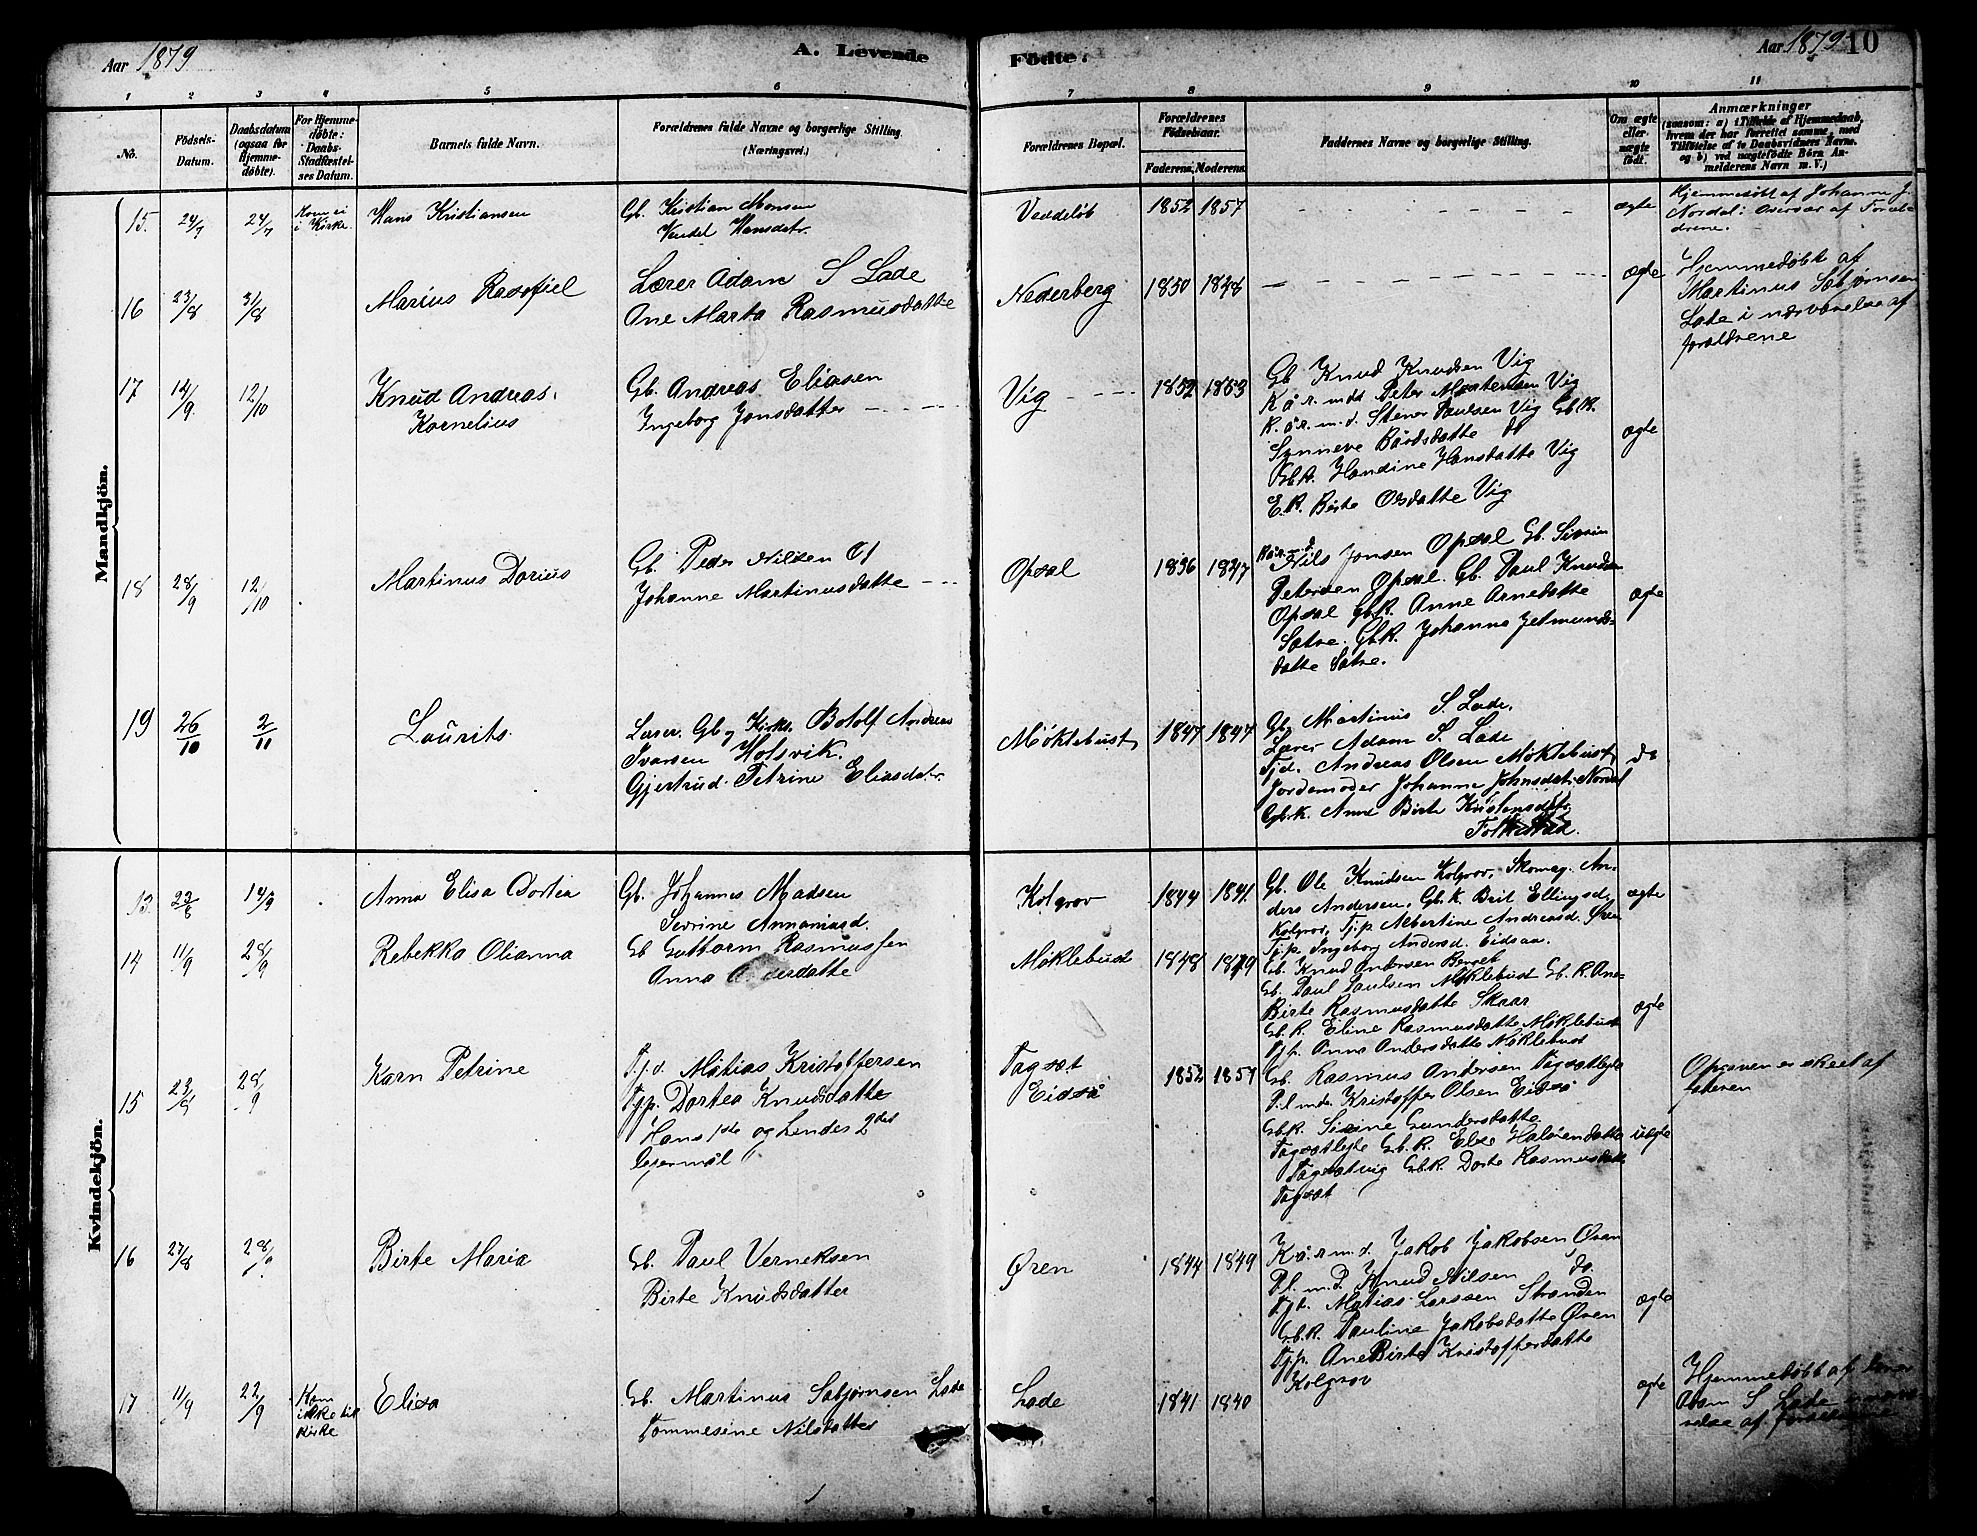 Aar 1879
A. Levende
Födte.
Aar 1879 10
1 2 3 4 5 6 7 8 9 10 11
No.
Födsels-Datum.
Daabsdatum (ogsaa for Hjemme-döbte).
For Hjemme-döbte: Daabs-Stadfæstel-ses Datum.
Barnets fulde Navn.
Forældrenes fulde Navne og borgerlige Stilling.
(Næringsvei.)
Forældrenes Bopæl.
Forældrenes Födselsaar.
Faderens. Moderens.
Faddernes Navne og borgerlige Stilling.
Om ægte eller uægte födt.
Anmærkninger
(saasom: a) i Tilfælde af Hjemmedaab,
hvem der har forrettet samme, med
Tilföielse af to Daabsvidners Navne,
og b) ved uægtefödte Börn An-
melderens Navn m. V.)
Mandkjön.
15. 24/7 24/7 Kom ei i Kirke. Hans Kristiansen
Gb. Kristian Monsen
Hansdatr.
1852 1857
ægte
Hjemmedöbt af Johanne J
Nordal: Overvær af Foræl-
drene.
16 23/8 31/8 Marius
Lærer Adam S Lade
Ane Marta Rasmusdatte
Nederberg 1850 1848
ægte
Hjemmedøbt af
Martinus Sabjørnsen
Lade i nærværelse af
foraldrene
17 14/9. 12/10 Knud Andreas
Kornelius
Gb. Andreas Eliasen
Ingeborg Jonsdatter
Vig 1852 1853
Gb. Knud Knudsen Vig
K å. r. mdt Peter Mortensen Vig
K. å. r. m. d. Stener Paulsen Vig Gb.K.
Synneve Bårdsdatte do
Gb.K. Handine Hansdatte Vig
E.K. Birte Olsdatte Vig
ægte
18 28/9 12/10 Martinus Dorius
Gb. Peder Nilsen
Johanne Martinusdatte
Opsal 1836 1837
Nils Jonsen Opsal Gb. Sivsin
Petersen Opsal. Gb. Paul Knudsen
Opsal GbK. Anne Arnedatte
Satre. GbK. Johanna Jetmunds-
datte Satre.
ægte
19 26/10 2/11 Laurits
Gb og Kirks. Botolf Andreas
Ivarsen Holsvik.
Gjertrud Petrine Eliasdatr.
Möklebust 1847 1847
Gb. Martinus S. Lade.
Lærer Adam S. Lade
Tjd. Andreas Olsen Möklebust
Jordemoder Johanne Johnsdatr. Nordal
Gb.k. Anne Birte Kristensdatr
Folkestad.
do
Kvindekjön.
13. 23/8 14/9 Anna Elisa Dortea
Gb. Johannes Madsen
Sevrine Annaniasd.
Kolgrov 1844 1841.
Gb. Ole Knudsen Kolgrov, Skomag. An-
ders Andersen, Gb.k. Brit Ellingsd.
Kolgrov, Tj.p Albertine Andreasd.
Tj.p. Ingeborg Andersd. Eidsaa.
ægte
14 11/9 28/9 Rebekka Olianna
Gb Guttorm Rasmussen
Anna
Möklebust 1848 1849
Gb. Knud Andersen Berget
Gb. Paul Paulsen Möklebust Gb.K. Ane
Birte Rasmusdatte Skaar
Gb.K. Eline Rasmusdatte Möklebust
Tj.p. Anna Andersdatte Möklebust
ægte
15 28/9 Karn Petrine
Tj.d. Matias Kristoffersen
Tj.p. Dortea Knudsdatte
Hans 1ste og hendes 2det
lejermål
Tagsæt
Eidså
1852 1857
Gb. Rasmus Andersen
Kristoffer Olsen Eidså
Gb.K. Sivine Gundersdatte
Gb.K. Else
Gb.K. Dorte Rasmusdatte
Tagsæt
uægte
Opgaven er skeet af
faderen
16 27/8 28/9 Birte Maria
Gb. Paul Verneksen
Birte Knudsdatter
Øren 1844 1849
K. å. r m. d. Jakob Jakobsen Øren
Pl. m. d. Knud Nilsen do.
Tj.d. Matias Larssen Stranden
Gb.K. Pauline Jakobsdatte Øren
Tj.p. Ane Birte Kristofferdatte
Kolgrov
ægte
17 11/9 22/9 Kom ikke til Kirke Elisa
Gb. Martinus Sabjørnsen Lade
Tommesine Nilsdatter
Lade 1841 1840
ægte
Hjemmedøbt af lærer
Adam S Lade i nærvæ-
relse af foraldrene